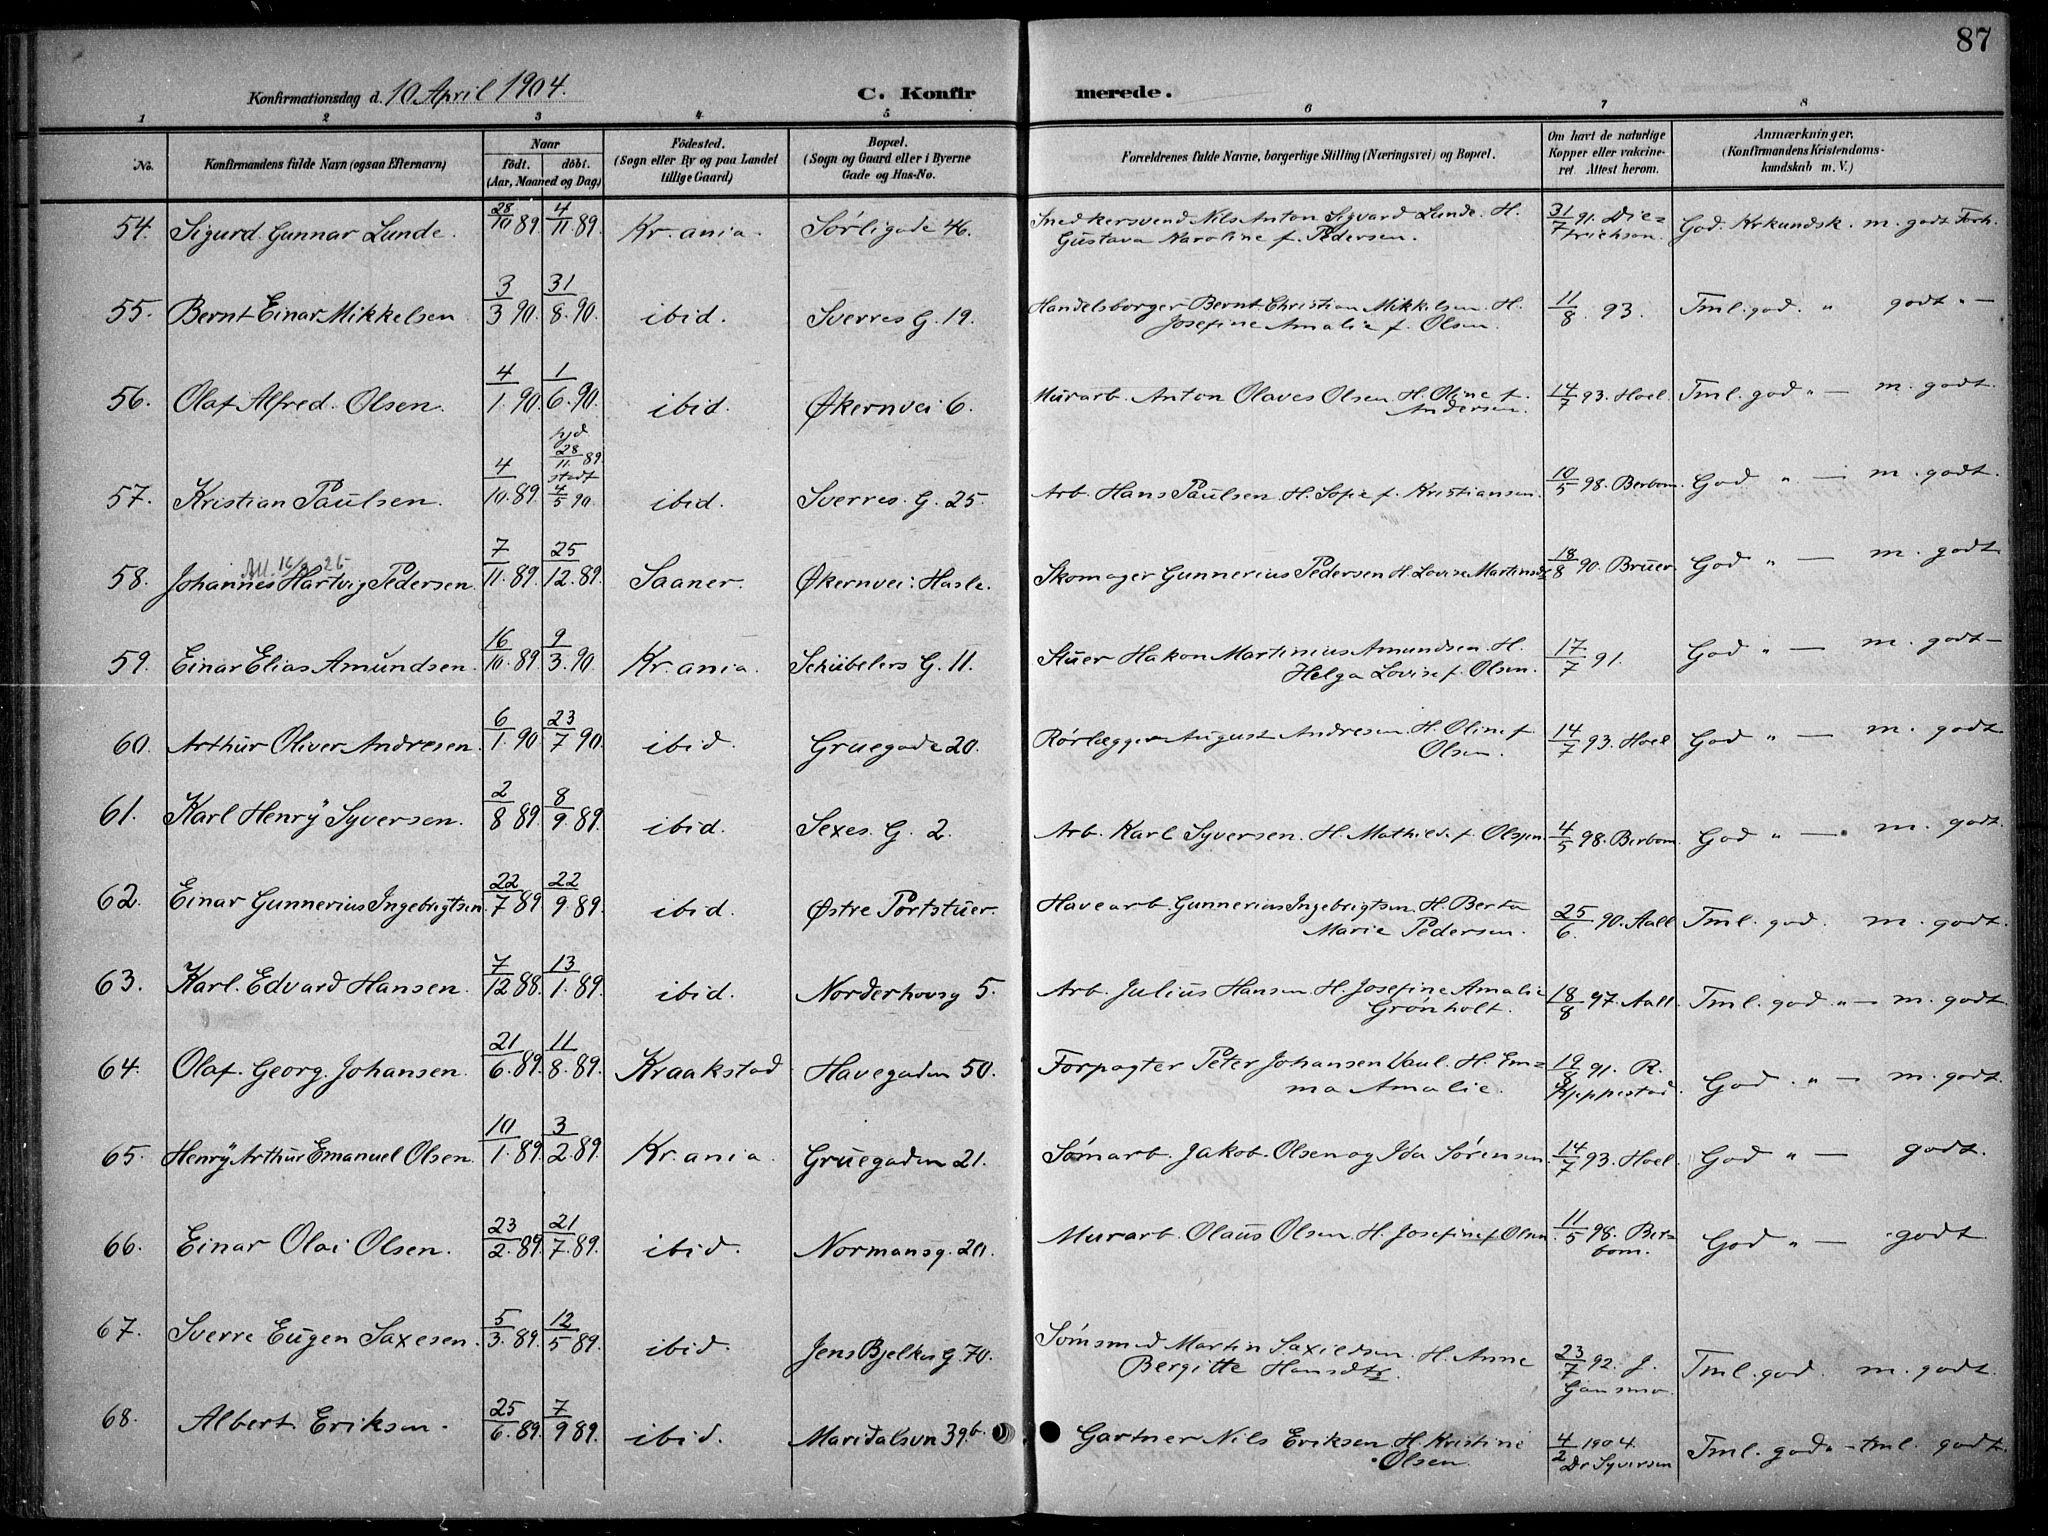 87
Konfirmationsdag d. 10 April 1904.
C. Konfirmerede.
1 2 3 4 5 6 7 8
No. | Konfirmandens fulde Navn (ogsaa Efternavn) | Naar født. døbt. (Aar, Maaned og Dag) | Fødested. (Sogn eller By og paa Landet tillige Gaard) | Bopæl. (Sogn og Gaard eller i Byerne Gade og Hus-No. | Forældrenes fulde Navne, borgerlige Stilling (Næringsvei) og Bopæl. | Om havt de naturlige Kopper eller vakcineret. Attest herom. | Anmærkninger, (Konfirmandens Kristendomskundskab m. V.)
54. Sigurd Gunnar Lunde. 28/10 89. 4/11 89. Kr.ania. Sørligade 46. Snedkersvend Nils Anton Sigvard Lunde. H. Gustava Karoline f. Pedersen. 31/7 91. Dietrichson. God. Krkundsk. m. godt Forh.
55. Bernt Einar Mikkelsen 3/3 90. 31/8 90. ibid. Sverres G. 19. Handelsborger Bernt Christian Mikkelsen H. Josefine Amalie f. Olsen. 11/8 93. Tml. god. " godt " —
56. Olaf Alfred. Olsen. 4/1 90. 1/6 90. ibid. Økernvei 6. Murarb. Anton Olaves Olsen H. Oline f. Andersen. 14/7 93. Hoel. Tml. god " — m. godt.
57. Kristian Paulsen. 4/10 89. hjd 28/11 89 stadf 4/5 90. ibid. Sverres. G. 25. Arb. Hans Paulsen H. Sofie f. Kristiansen. 10/5 98. Berbom. God " — m. godt.
58. Johannes Hartvig Pedersen. 7/11 89. 25/12 89. Saaner. Økernvei: Hasle. Skomager Gunnerius Pedersen H. Lovise Martinsdtr 18/8 90. Bruer. God " — m. godt
59. Einar Elias Amundsen. 16/10 89. 9/3 90. Kr.ania. Schübelers G. 11. Stuer Hakon Martinius Amundsen H. Helga Lovise f. Olsen. 17/7 91. God " — m. godt —
60. Arthur Oliver Andresen. 6/1 90. 23/7 90. ibid. Gruegade 20. Rørlægger August Andresen H. Oline f. Olsen. 14/7 93. Hoel God " — m. godt
61. Karl Henry Syversen. 2/8 89. 8/9 89. ibid. Sexes. G. 2. Arb. Karl Syversen. H. Mathilde f. Olsen. 4/5 98. Berbom. God " — m. godt.
62. Einar Gunnerius Ingebrigtsen. 22/7 89 22/9 89. ibid. Østre Portstuer. Havearb. Gunnerius Ingebrigtsen H. Berta Marie Pedersen. 25/6 90. Aall Tml. god. m. godt.
63. Karl. Edvard Hansen. 7/12 88. 13/1 89. ibid. Norderhovsg 5. Arb. Julius Hansen H. Josefine Amalie Grønholt. 18/8 97. Aall. Tml. god " — m. godt
64. Olaf. Georg. Johansen. 21/6 89. 11/8 89. Kraakstad Havegaden 50. Forpagter Peter Johansen H. Emma Amalie. 19/8 91. R. Kjeppestad. God. " — m. godt.
65. Henry Arthur Emanuel Olsen. 10/1 89. 3/2 89. Kr.ania. Gruegaden 21. Sømarb. Jakob Olsen og Ida Sørensen. 14/7 93. Hoel. God " — godt.
66. Einar Olai Olsen. 23/2 89. 21/7 89. ibid. Normansg. 20. Murarb. Olaus Olsen H. Josefine f. Olsen. 11/5 98. Berbom. God " — godt
67. Sverre Eugen Saxesen. 5/3 89. 12/5 89. ibid. Jens Bjelkes G. 70. Sømsmed Martin Saxildsen. H. Anne Bergitte Hansdtr. 23/7 92. J. Gausmo. Tml. god. m. godt.
68. Albert Eriksen. 25/6 89. 7/9 89. ibid. Maridalsvn 39b. Gartner Nils Eriksen H. Kristine Olsen. 4/2 1904. Dr Syversen Tml. god " — tml. godt.